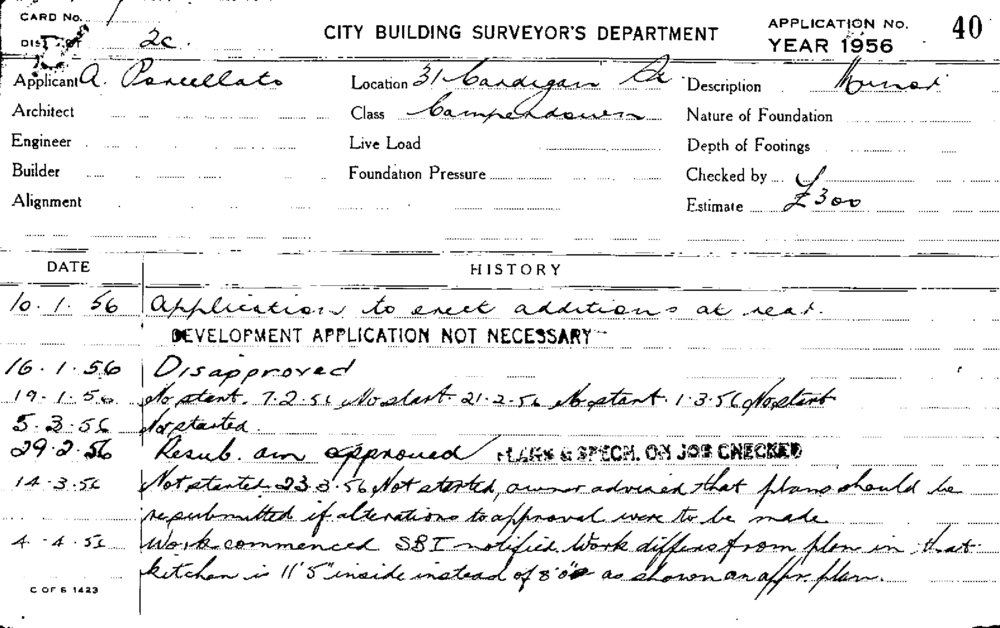 CARD No.
DISTRICT 2c.
CITY BUILDING SURVEYOR'S DEPARTMENT
APPLICATION No. 40
YEAR 1956
Applicant A. Porcellato Location 31 Cardigan St Description Minor
Architect Class Camperdown Nature of Foundation
Engineer Live Load Depth of Footings
Builder Foundation Pressure Checked by
Alignment Estimate £300
DATE HISTORY
10.1.56 Application to erect additions at rear.
DEVELOPMENT APPLICATION NOT NECESSARY
16.1.56 Disapproved
19.1.56 No start. 7.2.56 No start 21.2.56 No start. 1.3.56 No start
5.3.56 Not started.
29.2.56 Resub. am approved PLANS & SPECN. ON JOB CHECKED
14.3.56 Not started 23.3.56 Not started, owner advised that plans should be
resubmitted if alterations to approval were to be made
4.4.56 Work commenced SBI notified. Work differs from plan in that
kitchen is 11'5" inside instead of 8'0" as shown on appr. plan.
C OF S 1423